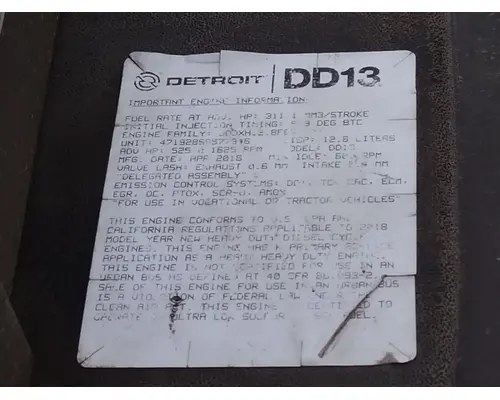 DETROIT DD13
IMPORTANT ENGINE INFORMATION
FUEL RATE AT ADV. HP: 311.1 MM3/STROKE
INITIAL INJECTION TIMING: DEG BTC
ENGINE FAMILY:
UNIT: 12.8 LITERS
ADV HP: 525 @ 1625 RPM MODEL: DD13
MFG. DATE: APR 2018 IDLE: RPM
VALVE LASH: EXHAUST 0.6 MM INTAKE MM
"DELEGATED ASSEMBLY"
EMISSION CONTROL SYSTEMS: ECM,
EGR, OC, PTOX, SCR-U, AMOX
"FOR USE IN VOCATIONAL OR TRACTOR VEHICLES"
THIS ENGINE CONFORMS TO U.S. EPA AND
CALIFORNIA REGULATIONS APPLICABLE TO 2018
MODEL YEAR NEW HEAVY DUTY DIESEL CYCLE
ENGINES. THIS ENGINE HAS A PRIMARY SERVICE
APPLICATION AS A HEAVY HEAVY DUTY ENGINE.
THIS ENGINE IS NOT CERTIFIED FOR USE IN AN
URBAN BUS AS DEFINED AT 40 CFR 86.093-2.
SALE OF THIS ENGINE FOR USE IN AN URBAN BUS
IS A VIOLATION OF FEDERAL LAW UNDER THE
CLEAN AIR ACT. THIS ENGINE IS CERTIFIED TO
OPERATE ON ULTRA LOW SULFUR DIESEL FUEL.